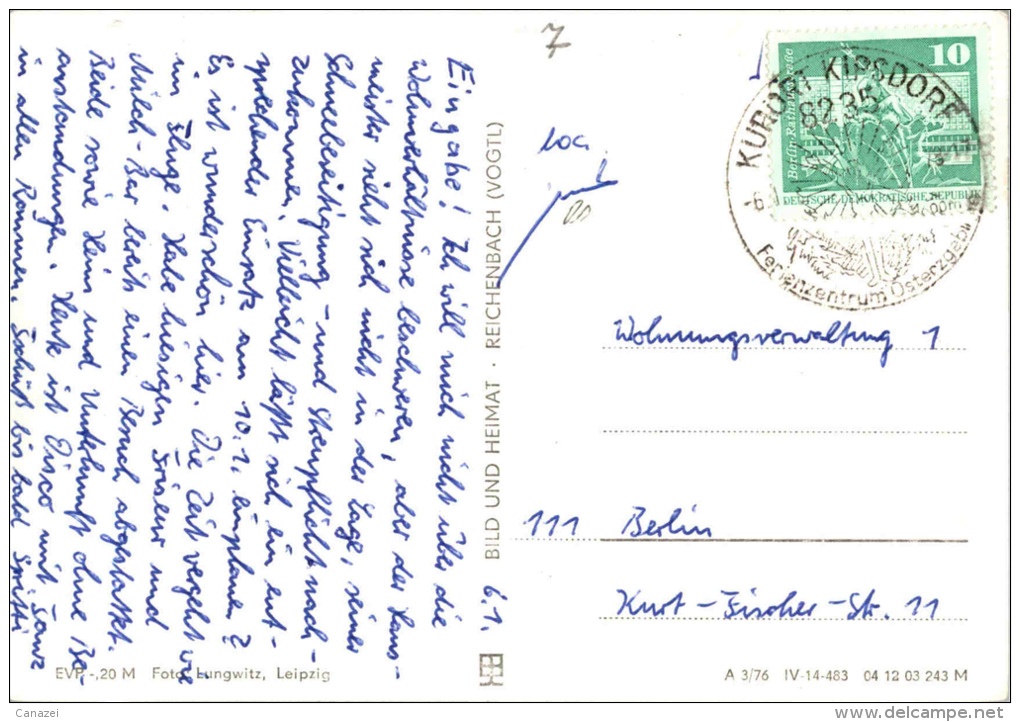 6.1.
Eingabe! Ich will mich nicht über die
Wohnverhältnisse beschweren, aber der Haus-
meister sieht sich nicht in der Lage, seiner
Schneebeseitigung - und Streupflicht nach-
zukommen. Vielleicht läßt sich ein ent-
sprechender Einsatz am 10.1. einplanen?
Es ist wunderschön hier. Die Zeit vergeht wie
im Fluge. Habe hiesigen Friseur und
Milch-Bar bereits einen Besuch abgestattet.
Beide sowie Heim und Unterkunft ohne Be-
anstandungen. Heute ist Disco mit Tanz
in allen Räumen. Tschüß bis bald
BILD UND HEIMAT · REICHENBACH (VOGTL)
EVP -,20 M Foto: Lungwitz, Leipzig
7
10
Berlin-Rathausstraße
DEUTSCHE DEMOKRATISCHE REPUBLIK
KURORT KIPSDORF
8235
Ferienzentrum Osterzgebirge
Wohnungsverwaltung 1
111 Berlin
Kurt-Fischer-Str. 11
A 3/76 IV-14-483 04 12 03 243 M
Canazei
www.delcampe.net